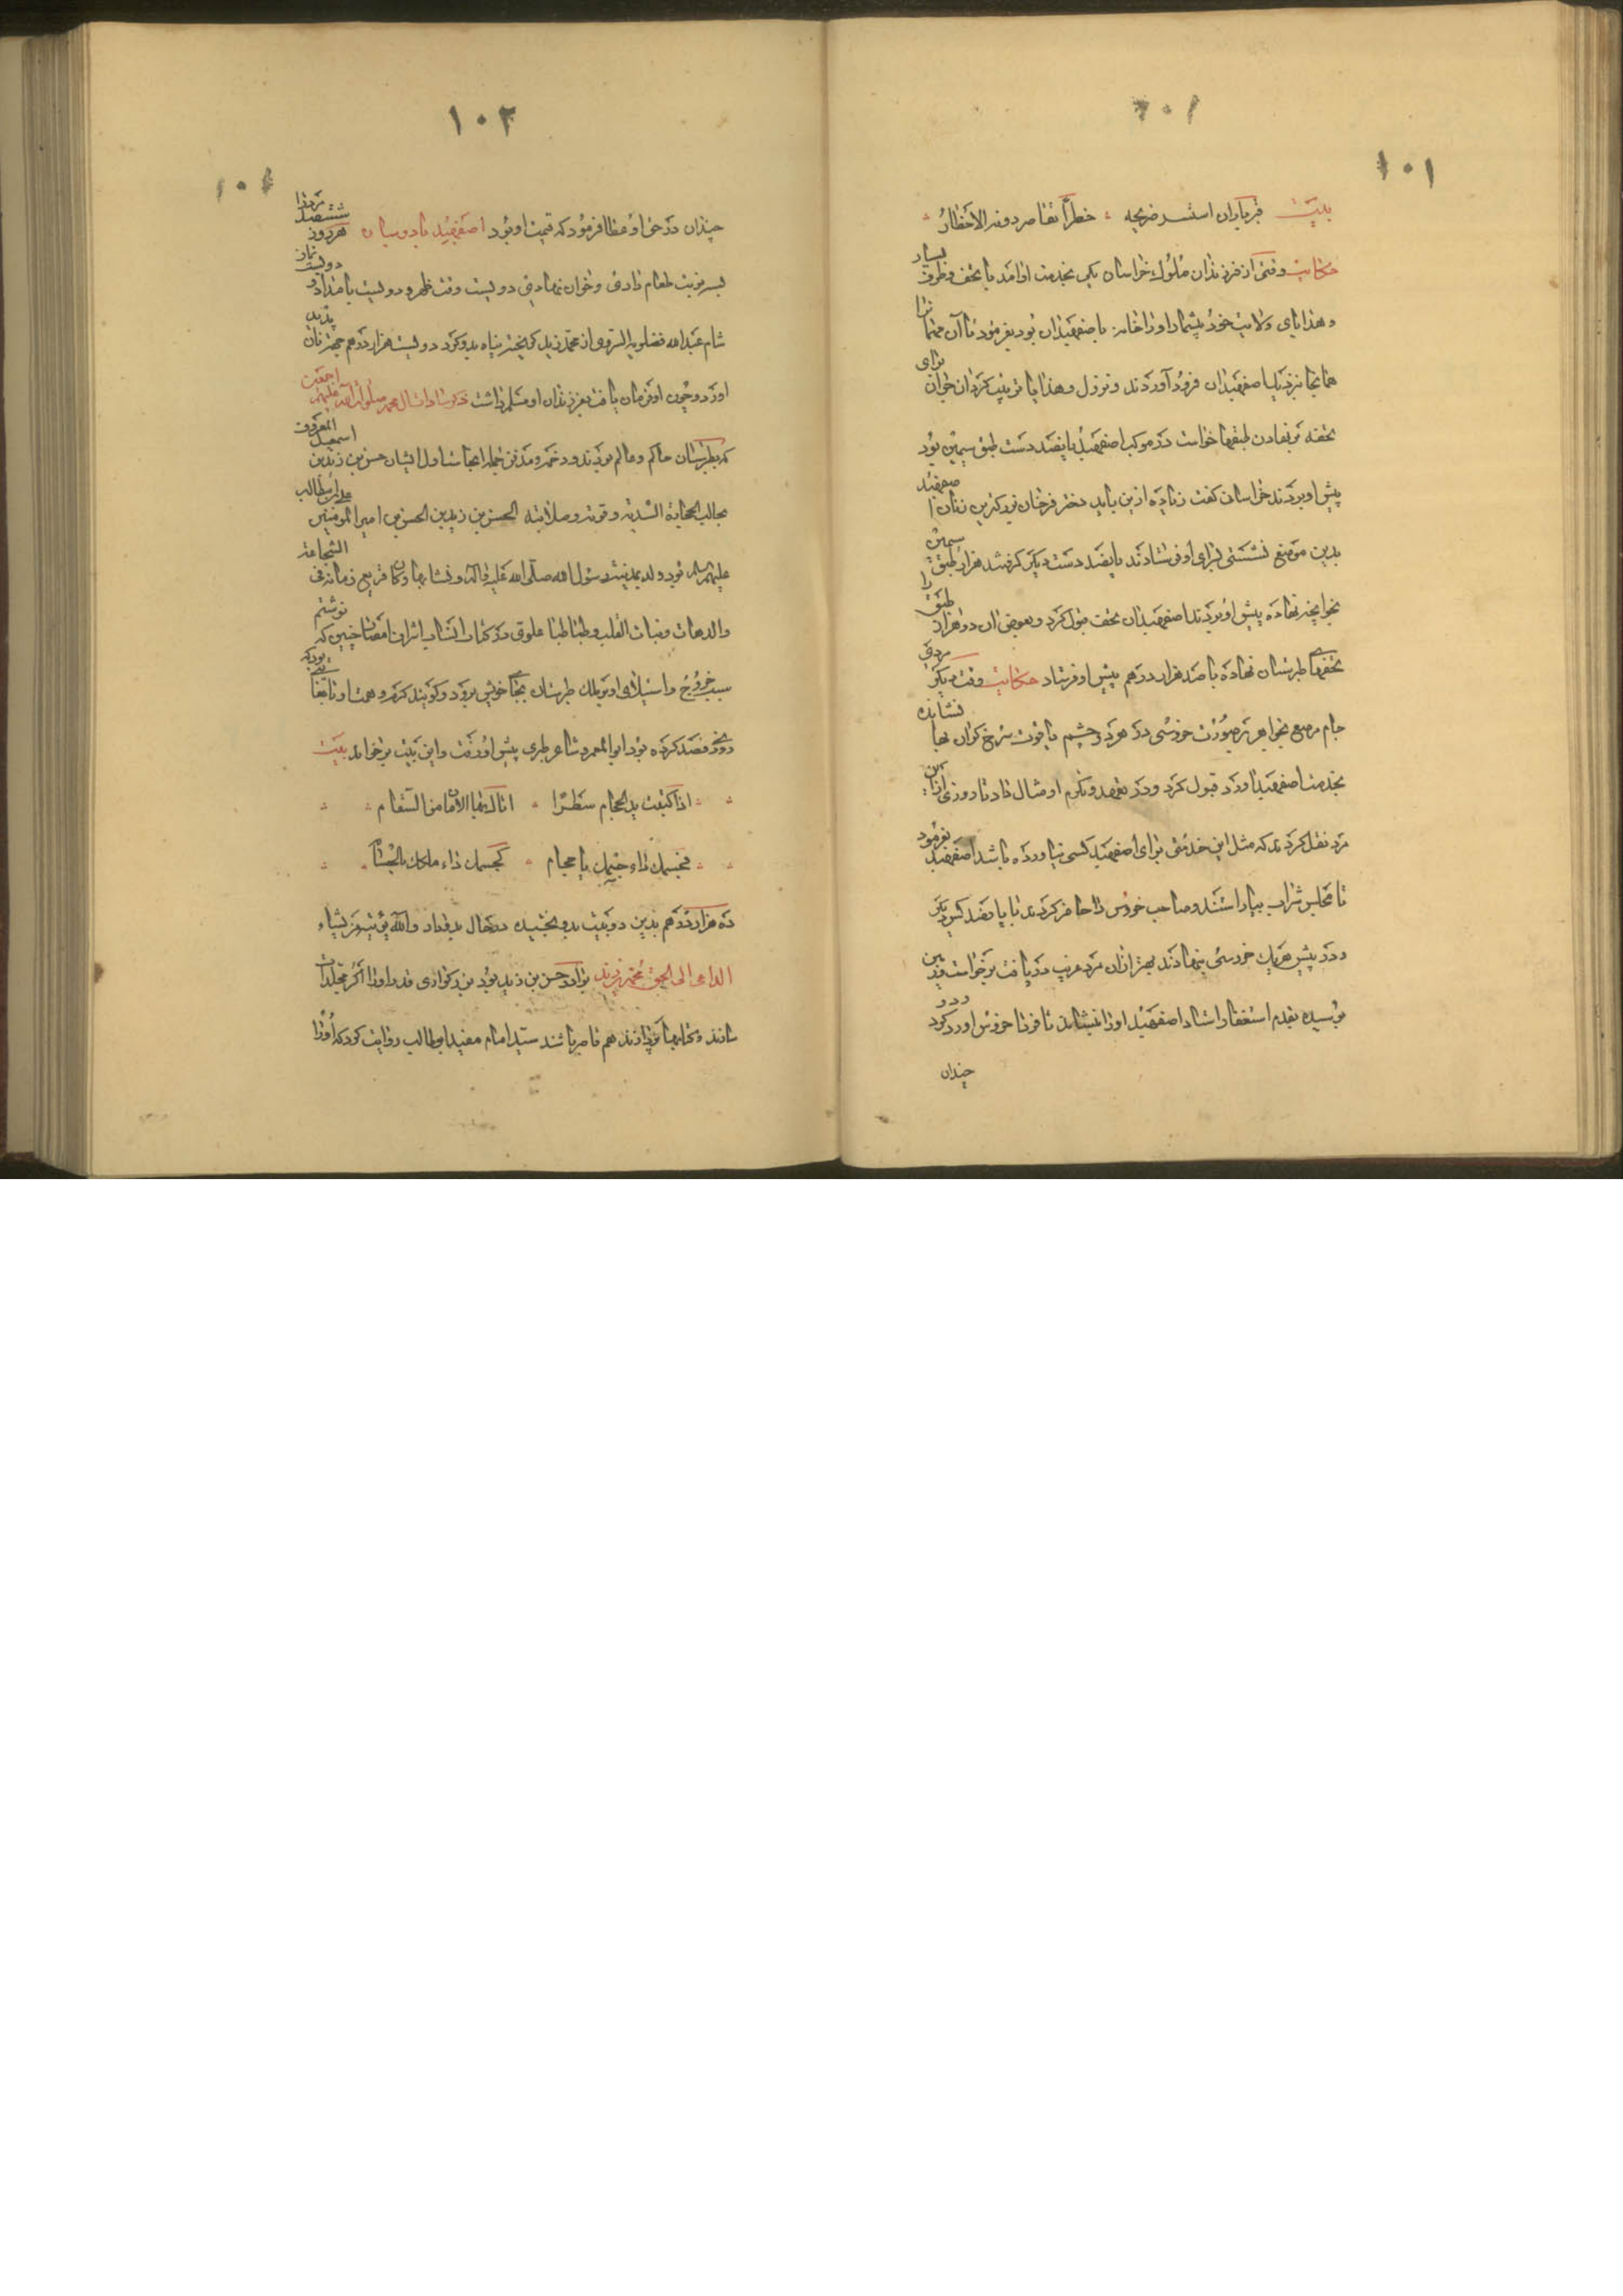 ۱۰۱
بیت قبر باران استسر ضریحه خطراً تقاصر دونه الاخطارُ
حکایت وقتی از فرزندان ملوک خراسان یکی بخدمت او آمد با تحف و ظرف بسیار
و هدایای ولایت خود بیشمار او را خانه با صفهبدان بود بفرمود تا آن مهمانرا
همانجا نزدیک اصفهبدان فرود آوردند و نزول و هدایا ترتیب کردان خوان برای
تحفه بر نهادن طبقها خواست در موکب اصفهبد پانصد دست طبق سیمین بود
پیش او بردند خراسانی گفت زیاده ازین باید دختر فرخان بزرگترین زنان اصفهبد
بدین موضع نشستی برای او فرستادند پانصد دست دیگر گرفتند هزار طبق سیمین
بخوانچه نهاده پیش او بردند اصفهبدان تحفت قبول کرد و بعوض آن دو هزار طبق را
تحفهای طبرستان نهاده با صد هزار درهم پیش او فرستاد حکایت وقت دیگر مردی
جام مرصع بجواهر بر صورت خروسی در هر دو چشم یاقوت سرخ گران بها نشانده
بخدمت اصفهبد آورد قبول کرد و در تعهد و تکرم او مثال داد تا روزی ازین
مرد نقل کردند که مثل این خدمتی برای اصفهبد کسی نیاورده باشد اصفهبد بفرمود
تا مجلس شراب بیاراستند و صاحب خروس را حاضر کردند با پانصد کس دیگر
و در پیش هر یک خروسی بنهادند بهتر از آن مرد غریب دریافت برخواست زمین
بوسیده بقدم استغفار استاد اصفهبد او را بنشاند تا فردا خروس او رد کرد و دو
چندان
۱۰۲
چندان در حق او عطا فرمود که قیمت او بود اصفهبد بادوسپان هر روز ششصد مرد را
بسه نوبت طعام دادی و خوان نهادی دویست وقت ظهر و دویست بامداد و دویست نماز
شام عبدالله فضلویه السروی از محمد زید گریخته پناه بدو کرد دویست هزار درهم جهة نان پدید
آورد و چون او فرمان یافت بفرزندان او مسلم داشت ذکر سادات آل محمد صلوات الله علیهم اجمعین
که بطبرستان حاکم و عالم بودند و دخمه و مدفن جمله اینجاست اول ایشان حسن بن زید بن اسمعیل المعروف
بجالب الحجارة لشدته و قوته و صلابته الحسن بن زید بن الحسن بن امیر المومنین علی ابن ابیطالب
علیهم السلام بود ولد بمدینة رسول الله صلی الله علیه و آله و نشا بها و کان قریع زمانه فی الشجاعة
والدهاء و ثبات القلب و طباطبا علوی در کتاب انساب اشراف امصار چنین که نوشتم
سبب خروج و استیلای او بر ملک طبرستان بجای خویش برود و گویند کرم و همت او تا بغایتی بود که
روزی فصد کرده بود ابوالغمر شاعر طبری پیش او رفت و این بیت بر خواند بیت
اذا کتبت ید الحجام سطراً اتاک بها الامان من السقام
فحسمک داء جسمک باحتجام کحسمک داء ملکک بالحسام
ده هزار درهم بدین دو بیت بدو بخشید در حال بدو داد والله یؤتیه من یشاء
الداعی الی الحق محمد بن زید برادر حسن بن زید بود بزرگواری قدر او را اگر مجلدات
سازند و بحرها پردازند هم قاصر باشند سید امام مفید ابوطالب روایت کرد که او را